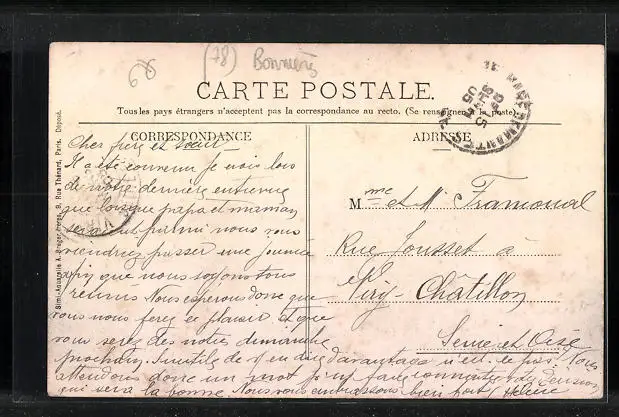 (78) Bonnières
CARTE POSTALE.
Tous les pays étrangers n'acceptent pas la correspondance au recto. (Se renseigner à la poste).
CORRESPONDANCE
ADRESSE
Simili-Aquarelle A. Breger Frères, 9, Rue Thénard, Paris. Déposé.
Cher frère et sœur
Il a été convenu je crois lors
de notre dernière entrevue
que lorsque papa et maman
seraient parmi nous vous
viendriez passer une journée
afin que nous soyons tous
réunis Nous espérons donc que
vous nous ferez ce plaisir et que
vous serez des nôtres dimanche
prochain. Inutile de davantage Nous
attendons donc un mot décision
qui sera la bonne. Nous vous embrassons bien fort Hélène
Mme et Mr Tramoual
Rue Jousset à
Viry-Châtillon
Seine et Oise